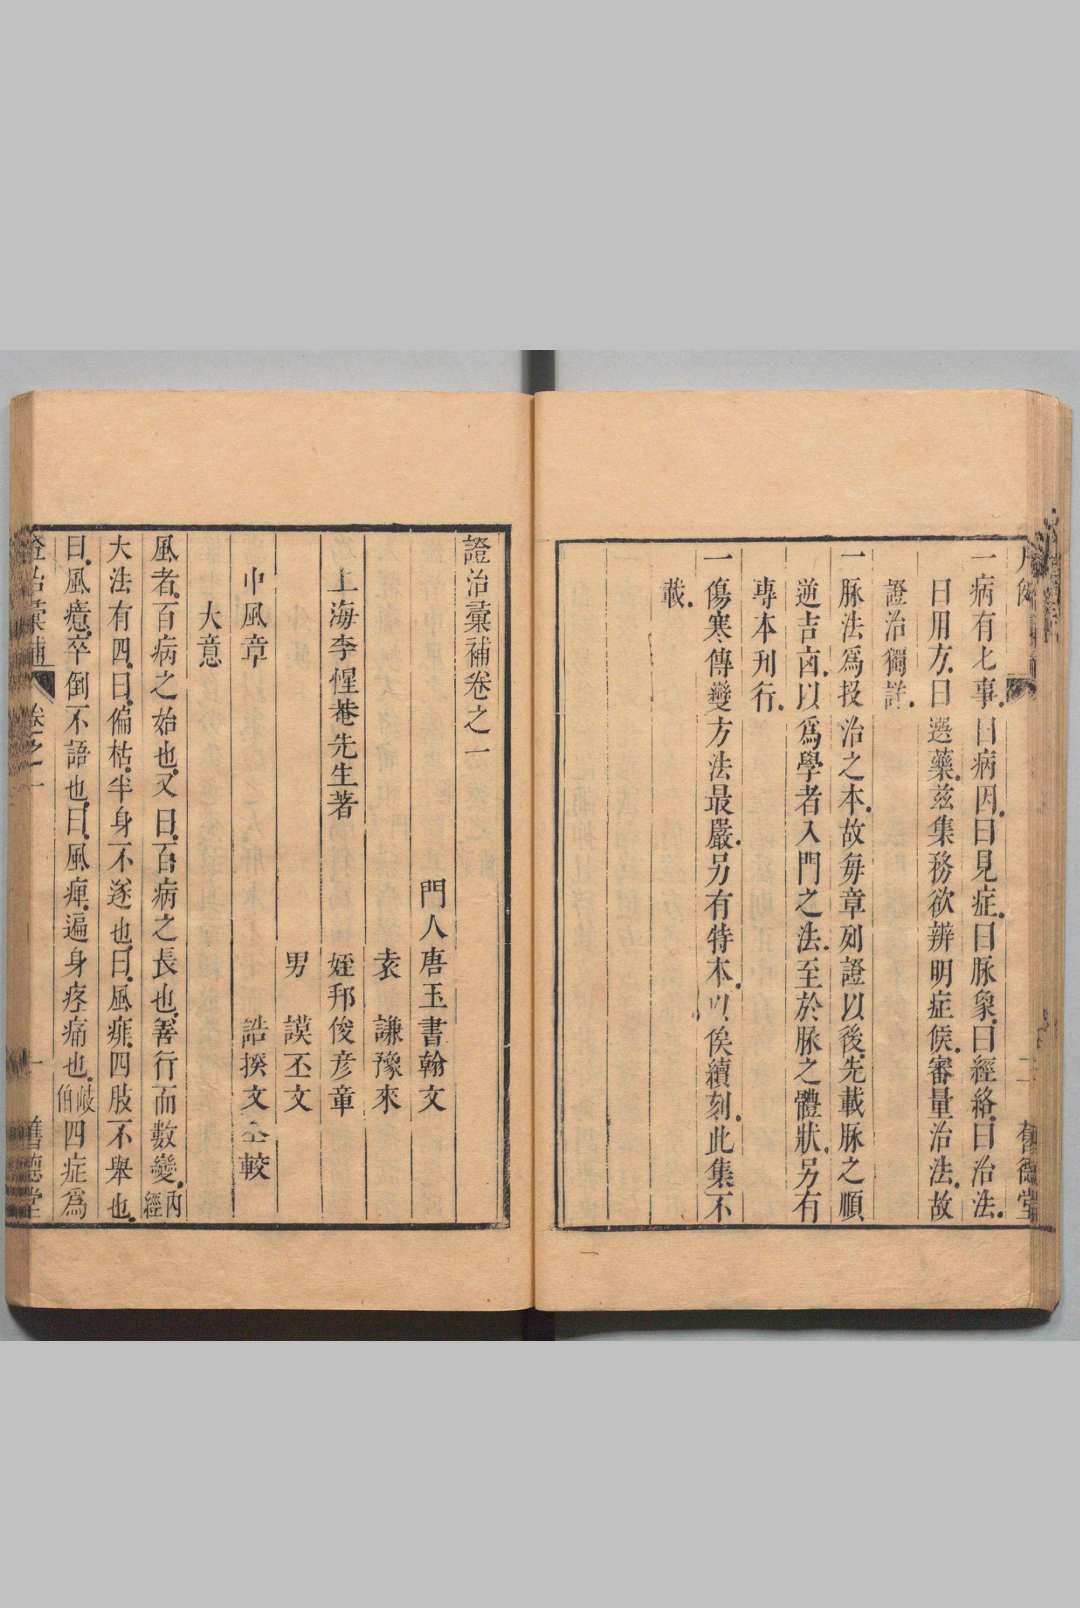 一病有七事。曰病因。曰見症。曰脉象。曰經絡。曰治法。
曰用方。曰選藥。茲集務欲辨明症候。審量治法。故
證治獨詳。
一脉法爲投治之本。故每章列證以後。先載脉之順
逆吉凶。以爲學者入門之法。至於脉之體狀。另有
專本刊行。
一傷寒傳變方法最嚴。另有特本。以俟續刻。此集不
載。
二
舊德堂
證治彙補卷之一
門人唐玉書翰文
袁謙豫來
上海李惺菴先生著
姪邦俊彥章
男謨丕文
中風章
誥揆文仝較
大意
風者。百病之始也。又曰。百病之長也。善行而數變。內經
大法有四。曰。偏枯。半身不遂也。曰。風痱。四肢不舉也。
曰。風癔。卒倒不語也。曰。風痺。遍身疼痛也。岐伯四症爲
證治彙補
卷之一
一
舊德堂